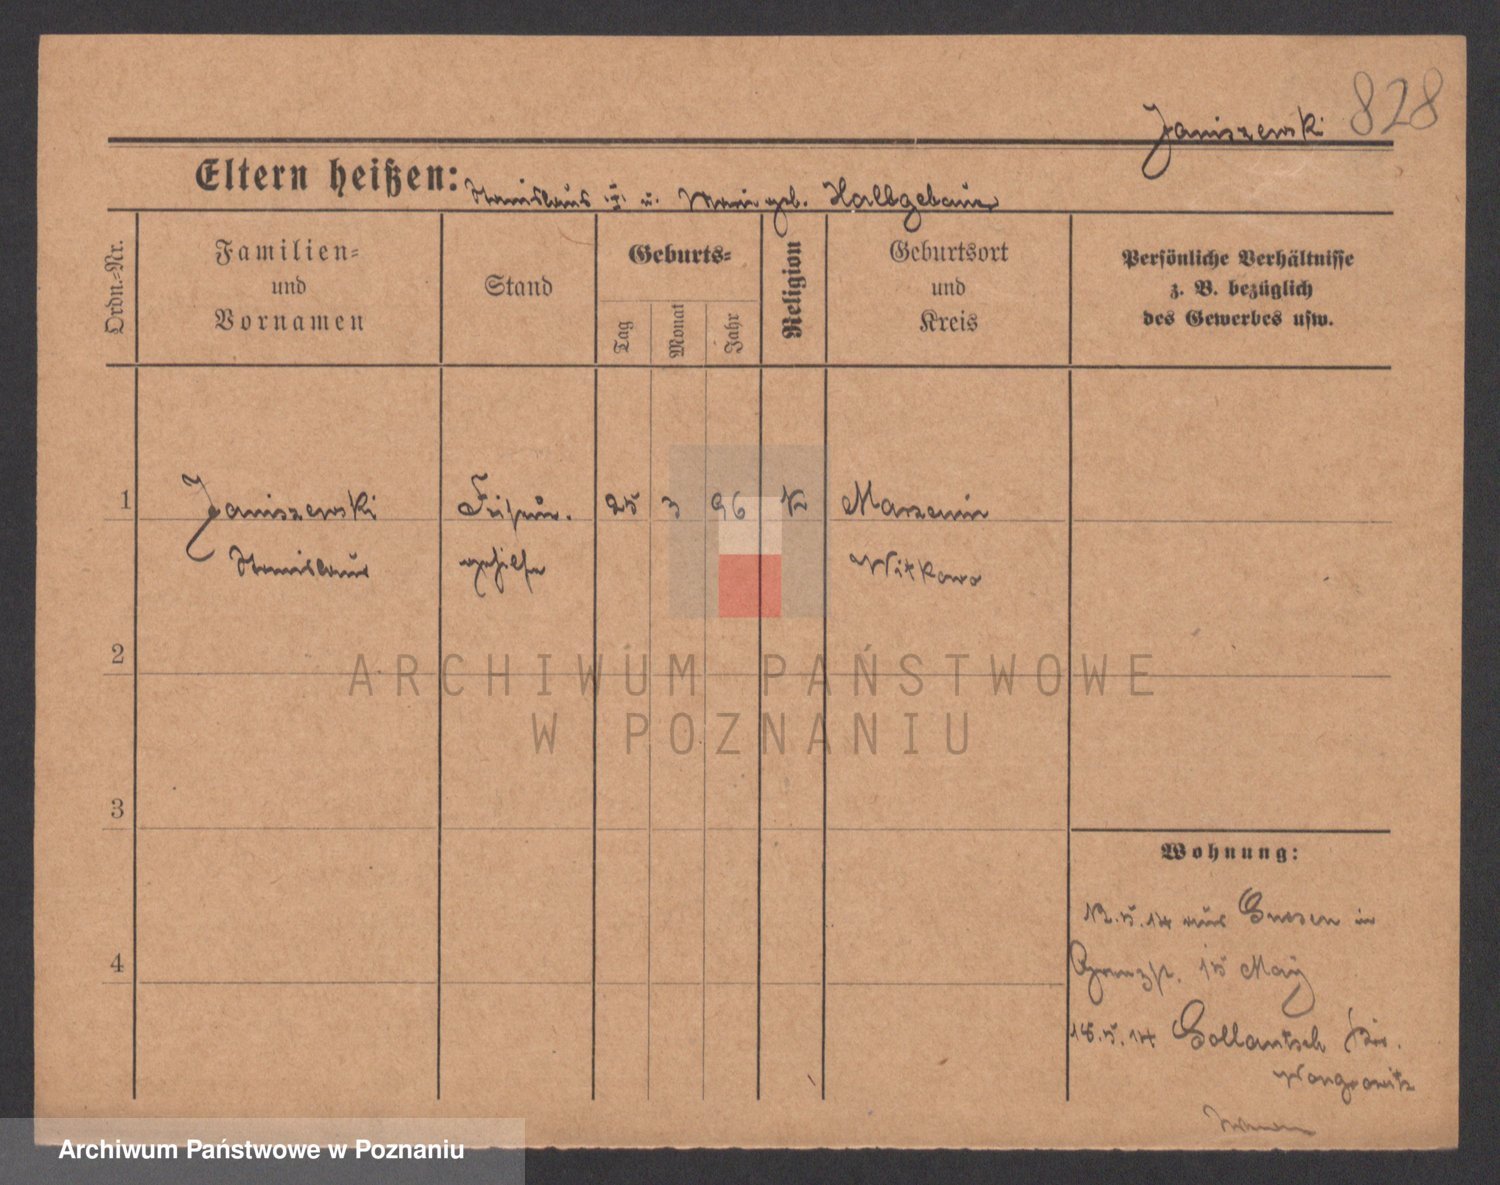 Janiszewski 828
Eltern heißen: Stanislaus u. Marie geb. Hallgebauer
Ordn.=Nr.
Familien=
und
Vornamen
Stand
Geburts=
Tag
Monat
Jahr
Religion
Geburtsort
und
Kreis
Persönliche Verhältnisse
z. B. bezüglich
des Gewerbes usw.
1 Janiszewski Friseur. 25 3 96 K Marzenin
Stanislaus gehilfe Witkowo
2
3
4
Wohnung:
12.5.14 aus Gnesen in
15 May
18.5.14 Gollantsch Kr.
Wongrowitz
ARCHIWUM PAŃSTWOWE
W POZNANIU
Archiwum Państwowe w Poznaniu